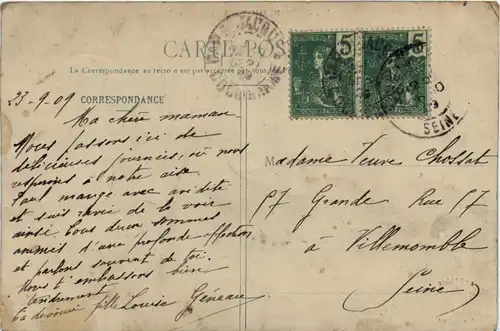 CARTE POS
La Correspondance au recto n'est pas acceptée par tous
5 5
SEINE
23-9-09
CORRESPONDANCE
Ma chère maman
Nous passons ici de
délicieuses journées, où nous
respirons à notre aise
Paul mange avec avidité
et suis ravie de le voir
ainsi. Tous deux sommes
animés d'une profonde affection
et parlons souvent de toi.
Nous t'embrassons bien
tendrement
ta dévouée fille Louise Géneau
Madame Veuve Chossat
57 Grande Rue 57
à Villemomble
Seine